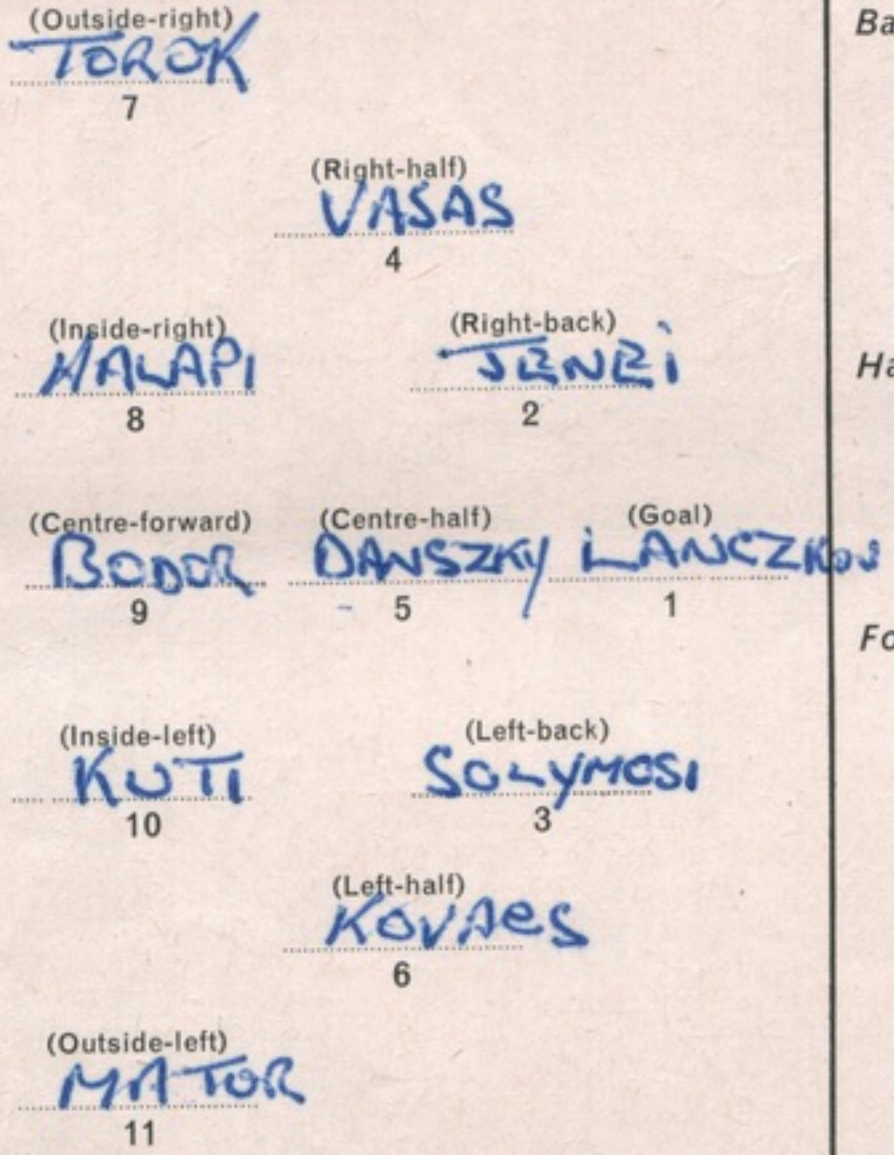 (Outside-right)
TOROK
7
Ba
(Right-half)
VASAS
4
(Inside-right)
HALAPI
8
(Right-back)
JENEi
2
Ha
(Centre-forward)
BODOR
9
(Centre-half)
DANSZKY
5
(Goal)
LANCZKOS
1
Fo
(Inside-left)
KUTI
10
(Left-back)
SOLYMOSI
3
(Left-half)
KOVAcS
6
(Outside-left)
MATOR
11